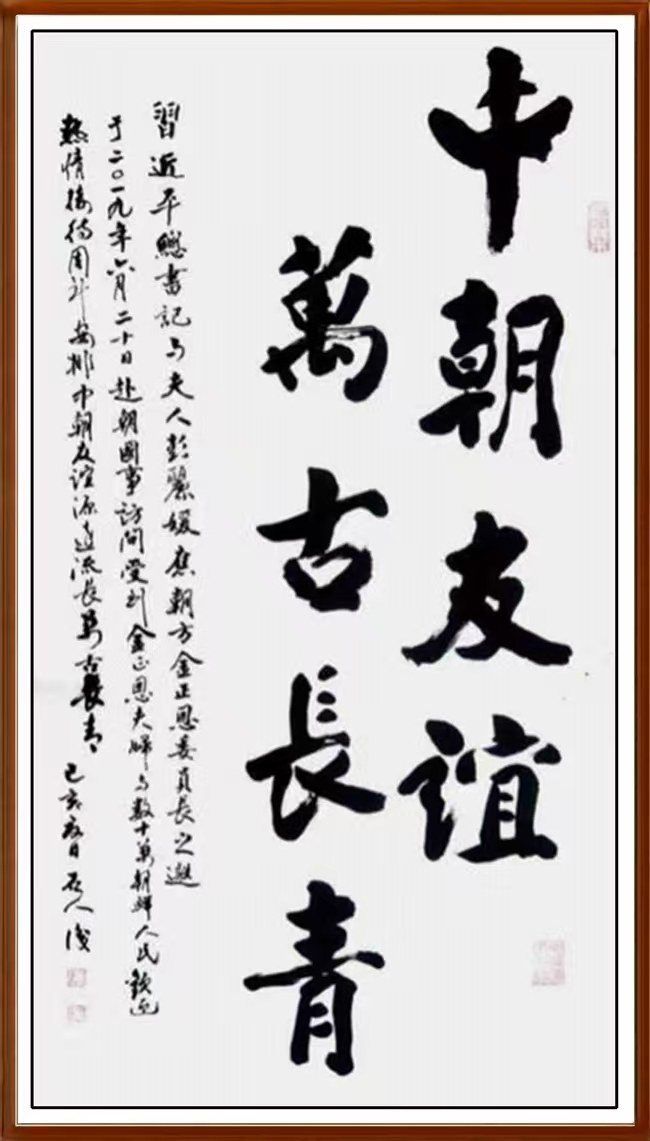 中朝友誼
萬古長青
習近平總書記与夫人彭麗媛應朝方金正恩委員長之邀
于二〇一九年六月二十日赴朝國事訪問受到金正恩夫婦与數十萬朝鮮人民歡迎
熱情接待周到安排中朝友誼源遠流長萬古長青 己亥夏日 石人